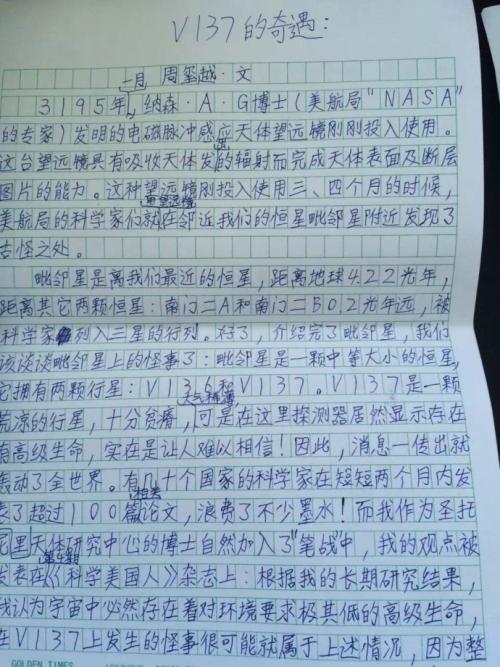 V137的奇遇：
周玺越·文
3195年一月，纳森·A·G博士（美航局"NASA"
的专家）发明的电磁脉冲感应天体望远镜刚刚投入使用。
这台望远镜具有吸收天体发出的辐射而完成天体表面及断层
图片的能力。这种望远镜刚投入使用三、四个月的时候，
美航局的科学家们就在邻近我们的恒星毗邻星附近发现了
古怪之处。
毗邻星是离我们最近的恒星，距离地球4.22光年，
距离其它两颗恒星：南门二A和南门二B0.2光年远，被
科学家列入三星的行列。好了，介绍完了毗邻星，我们
该谈谈毗邻星上的怪事了：毗邻星是一颗中等大小的恒星，
它拥有两颗行星：V136和V137。V137是一颗
荒凉的行星，天气稀薄，十分贫瘠，可是在这里探测器居然显示存在
有高级生命，实在是让人难以相信！因此，消息一传出就
轰动了全世界。有几十个国家的科学家在短短两个月内发
表了超过100篇相关论文，浪费了不少墨水！而我作为圣托
尼里天体研究中心的博士自然加入了"笔战"中，我的观点被
发表在《科学美国人》杂志上：根据我的长期研究结果，
我认为宇宙中必然存在着对环境要求极其低的高级生命，
在V137上发生的怪事很可能就属于上述情况，因为整
GOLDEN TIMES